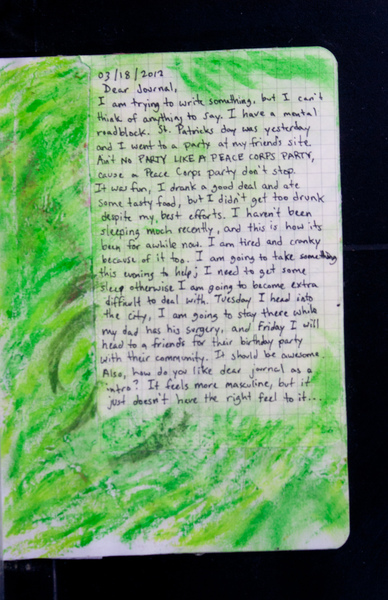 03/18/2012
Dear Journal,
I am trying to write something, but I can't
think of anything to say. I have a mental
roadblock. St. Patricks day was yesterday
and I went to a party at my friends site.
Ain't NO PARTY LIKE A PEACE CORPS PARTY,
cause a Peace Corps party don't stop.
It was fun, I drank a good deal and ate
some tasty food, but I didn't get too drunk
despite my best efforts. I haven't been
sleeping much recently, and this is how its
been for awhile now. I am tired and cranky
because of it too. I am going to take something
this evening to help; I need to get some
sleep otherwise I am going to become extra
difficult to deal with. Tuesday I head into
the city, I am going to stay there while
my dad has his surgery, and Friday I will
head to a friends for their birthday party
with their community. It should be awesome.
Also, how do you like dear journal as a
intro? It feels more masculine, but it
just doesn't have the right feel to it...